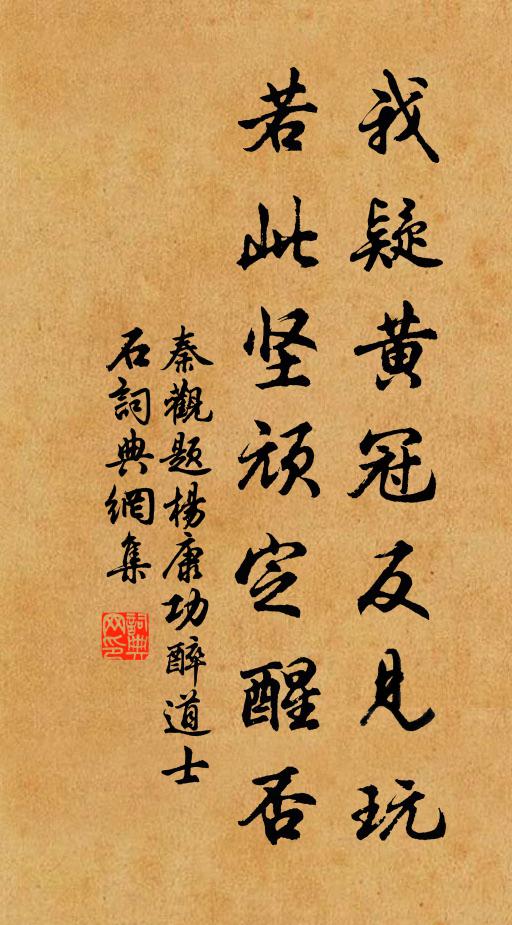 我疑黄冠反見玩
若此坚頑定醒否
秦觀題楊康功醉道士
石詞典網集
詞典网印